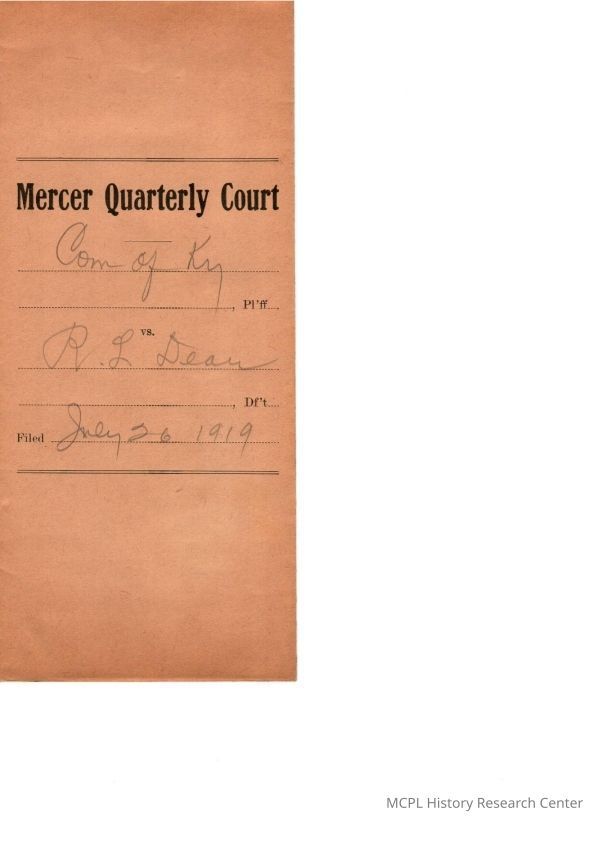 Mercer Quarterly Court
Com of Ky
, Pl'ff
vs.
R. L. Dean
, Df't
Filed July 26 1919
MCPL History Research Center